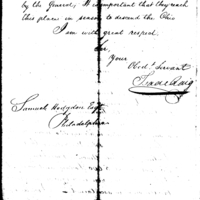 by the General, It is important that they reach
this place in season to descend the Ohio
I am with great respect
Sir,
Your
Obed.t Servant
Isaac Craig
Samuel Hodgdon Esqr
Philadelphia